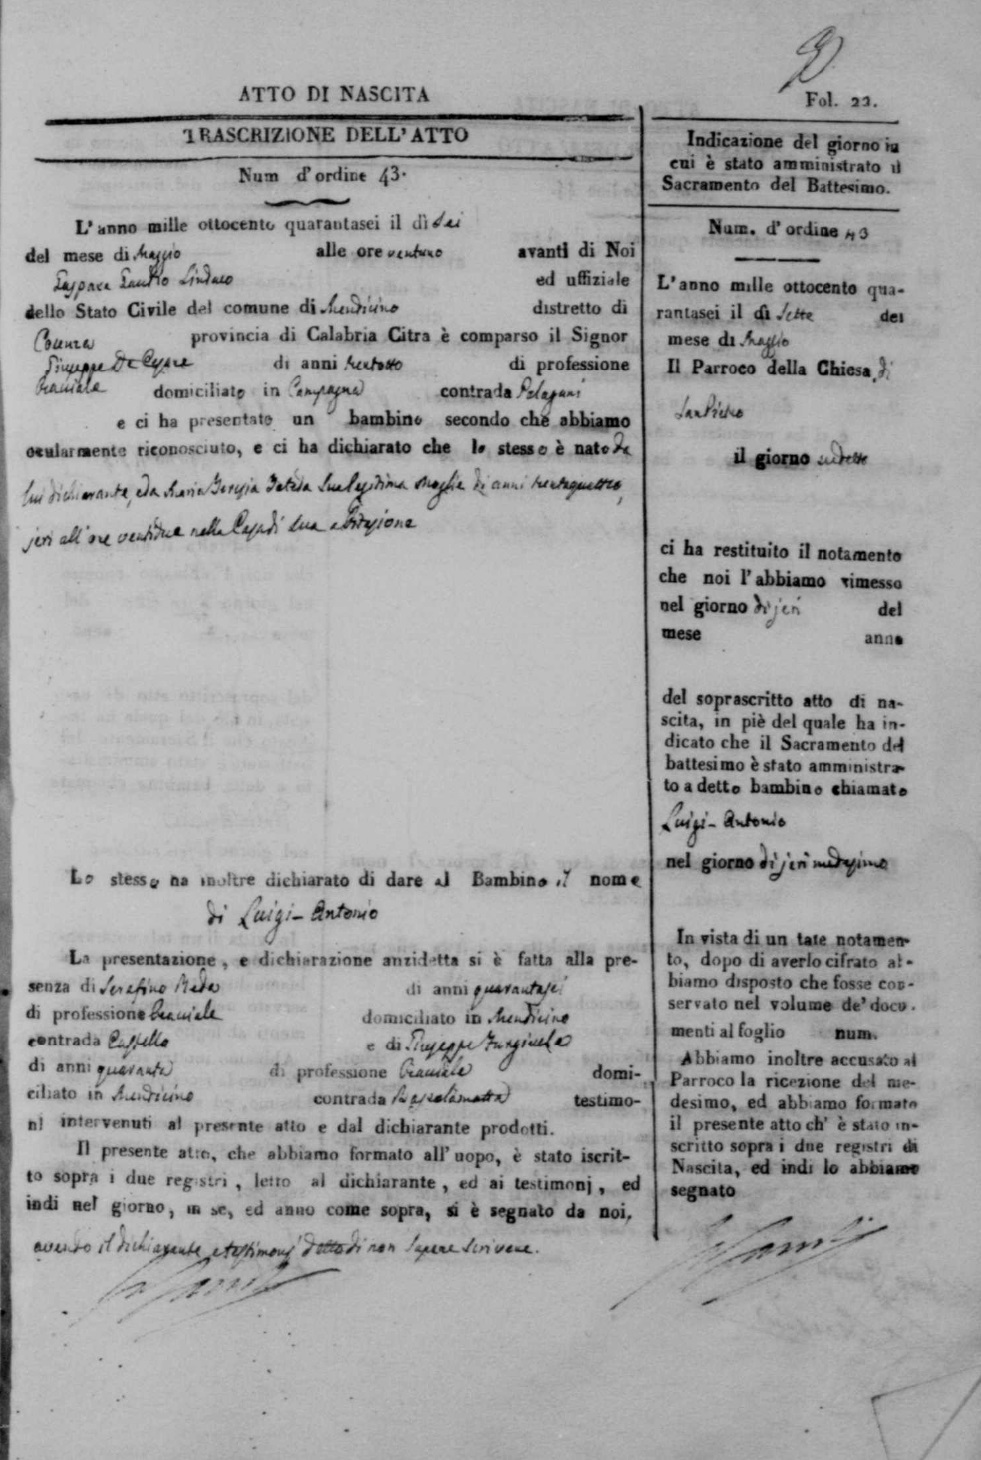 ATTO DI NASCITA
TRASCRIZIONE DELL' ATTO
Num d' ordine 43.
L' anno mille ottocento quarantasei il dì Sei
del mese di Maggio alle ore ventuno avanti di Noi
Gaspare Sindaco ed uffiziale
dello Stato Civile del comune di Mendicino distretto di
Cosenza provincia di Calabria Citra è comparso il Signor
Giuseppe De di anni trentotto di professione
Braciale domiciliato in Campagna contrada
e ci ha presentato un bambino secondo che abbiamo
ocularmente riconosciuto, e ci ha dichiarato che lo stesso è nato da
lui dichiarante, e da Maria Sua legittima moglie di anni trentaquattro,
jeri all'ore ventidue nella Casa di sua abitazione
Lo stesso ha inoltre dichiarato di dare al Bambino il nome
di Luigi-Antonio
La presentazione, e dichiarazione anzidetta si è fatta alla pre-
senza di Serafino Reda di anni quarantasei
di professione Braciale domiciliato in Mendicino
contrada Cappella e di Giuseppe
di anni quaranta di professione Braciale domi-
ciliato in Mendicino contrada testimo-
ni intervenuti al presente atto e dal dichiarante prodotti.
Il presente atto, che abbiamo formato all' uopo, è stato iscrit-
to sopra i due registri, letto al dichiarante, ed ai testimonj, ed
indi nel giorno, mese, ed anno come sopra, si è segnato da noi,
avendo il dichiarante, e testimonj detto di non sapere scrivere.
Fol. 22.
Indicazione del giorno in
cui è stato amministrato il
Sacramento del Battesimo.
Num. d' ordine 43
L' anno mille ottocento qua-
rantasei il dì Sette del
mese di Maggio
Il Parroco della Chiesa di
San Pietro
il giorno sudetto
ci ha restituito il notamento
che noi l' abbiamo rimesso
nel giorno di jeri del
mese anno
del soprascritto atto di na-
scita, in piè del quale ha in-
dicato che il Sacramento del
battesimo è stato amministra-
to a detto bambino chiamato
Luigi-Antonio
nel giorno di jeri medesimo
In vista di un tale notamen-
to, dopo di averlo cifrato ab-
biamo disposto che fosse con-
servato nel volume de' docu-
menti al foglio num.
Abbiamo inoltre accusato al
Parroco la ricezione del me-
desimo, ed abbiamo formato
il presente atto ch' è stato in-
scritto sopra i due registri di
Nascita, ed indi lo abbiamo
segnato